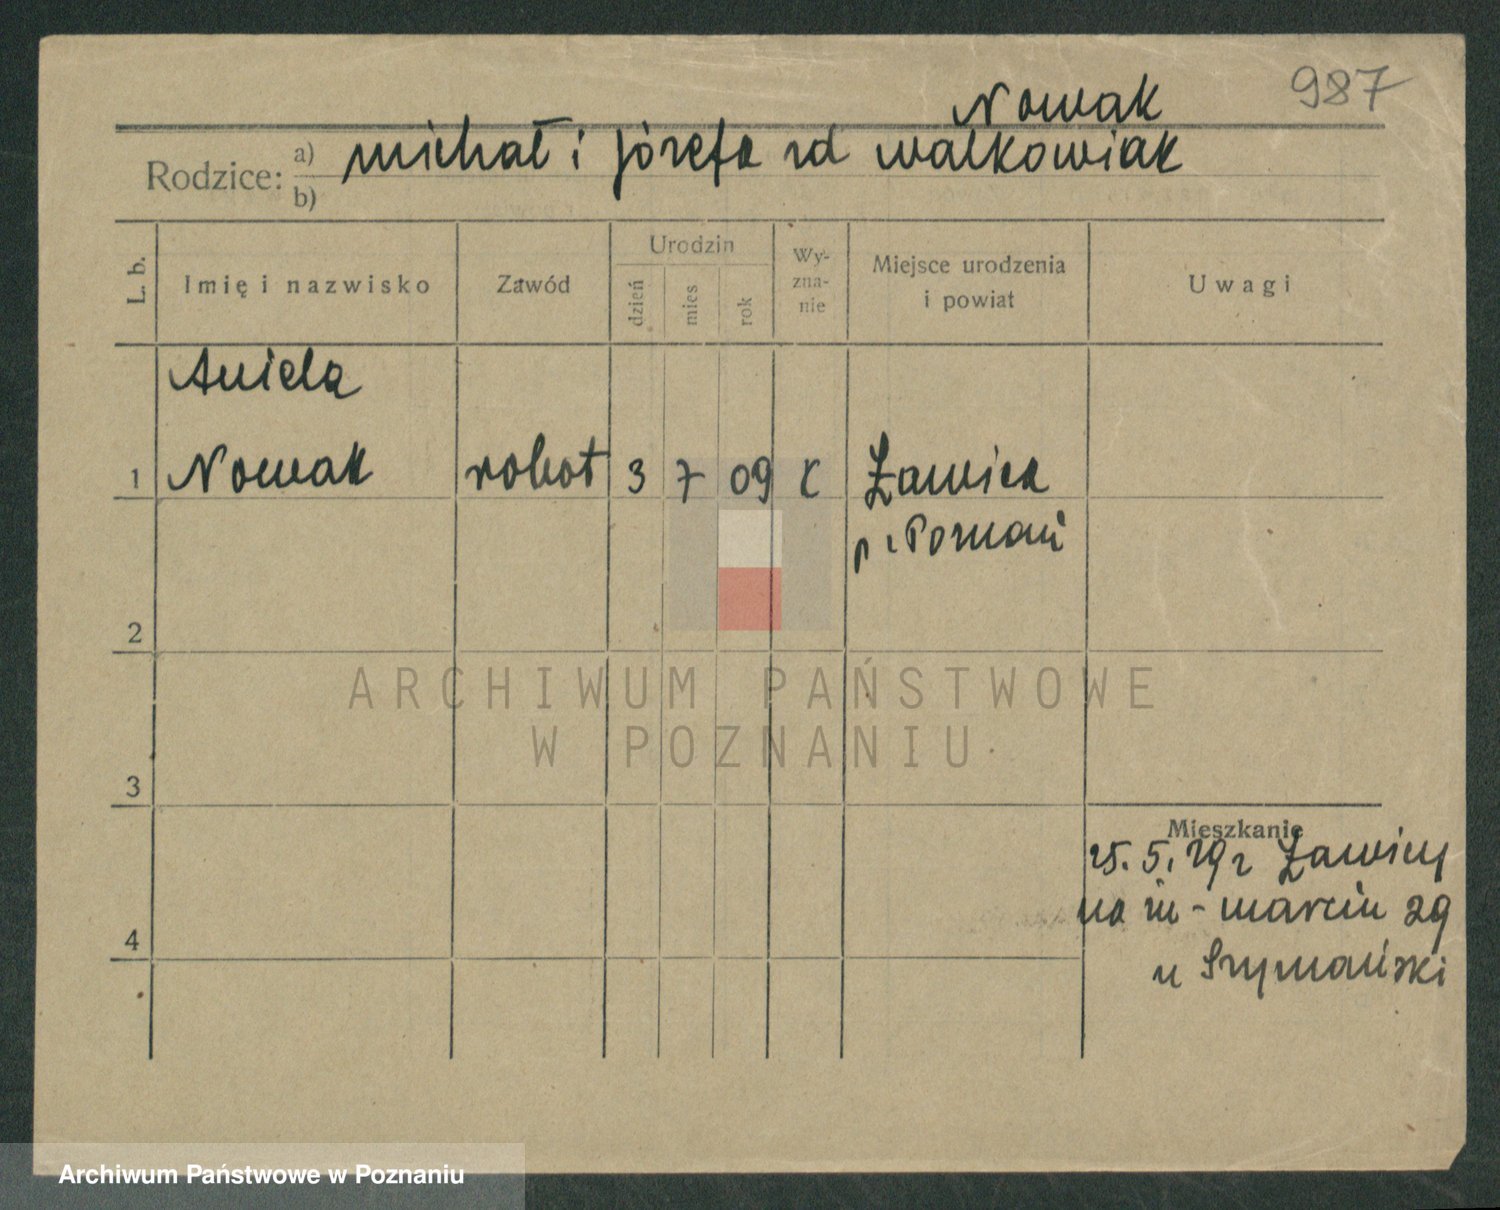 987
Nowak
Rodzice: a) michał i józefa zd walkowiak
b)
L. b.
Imię i nazwisko
Zawód
Urodzin
dzień
mies
rok
Wy-
zna-
nie
Miejsce urodzenia
i powiat
Uwagi
Aniela
1 Nowak robot 3 7 09 K Ławica
p. Poznań
2
ARCHIWUM PAŃSTWOWE
W POZNANIU
3
Mieszkanie
25. 5. 29 z Ławicy
na - marcin 29
u Szymański
4
Archiwum Państwowe w Poznaniu